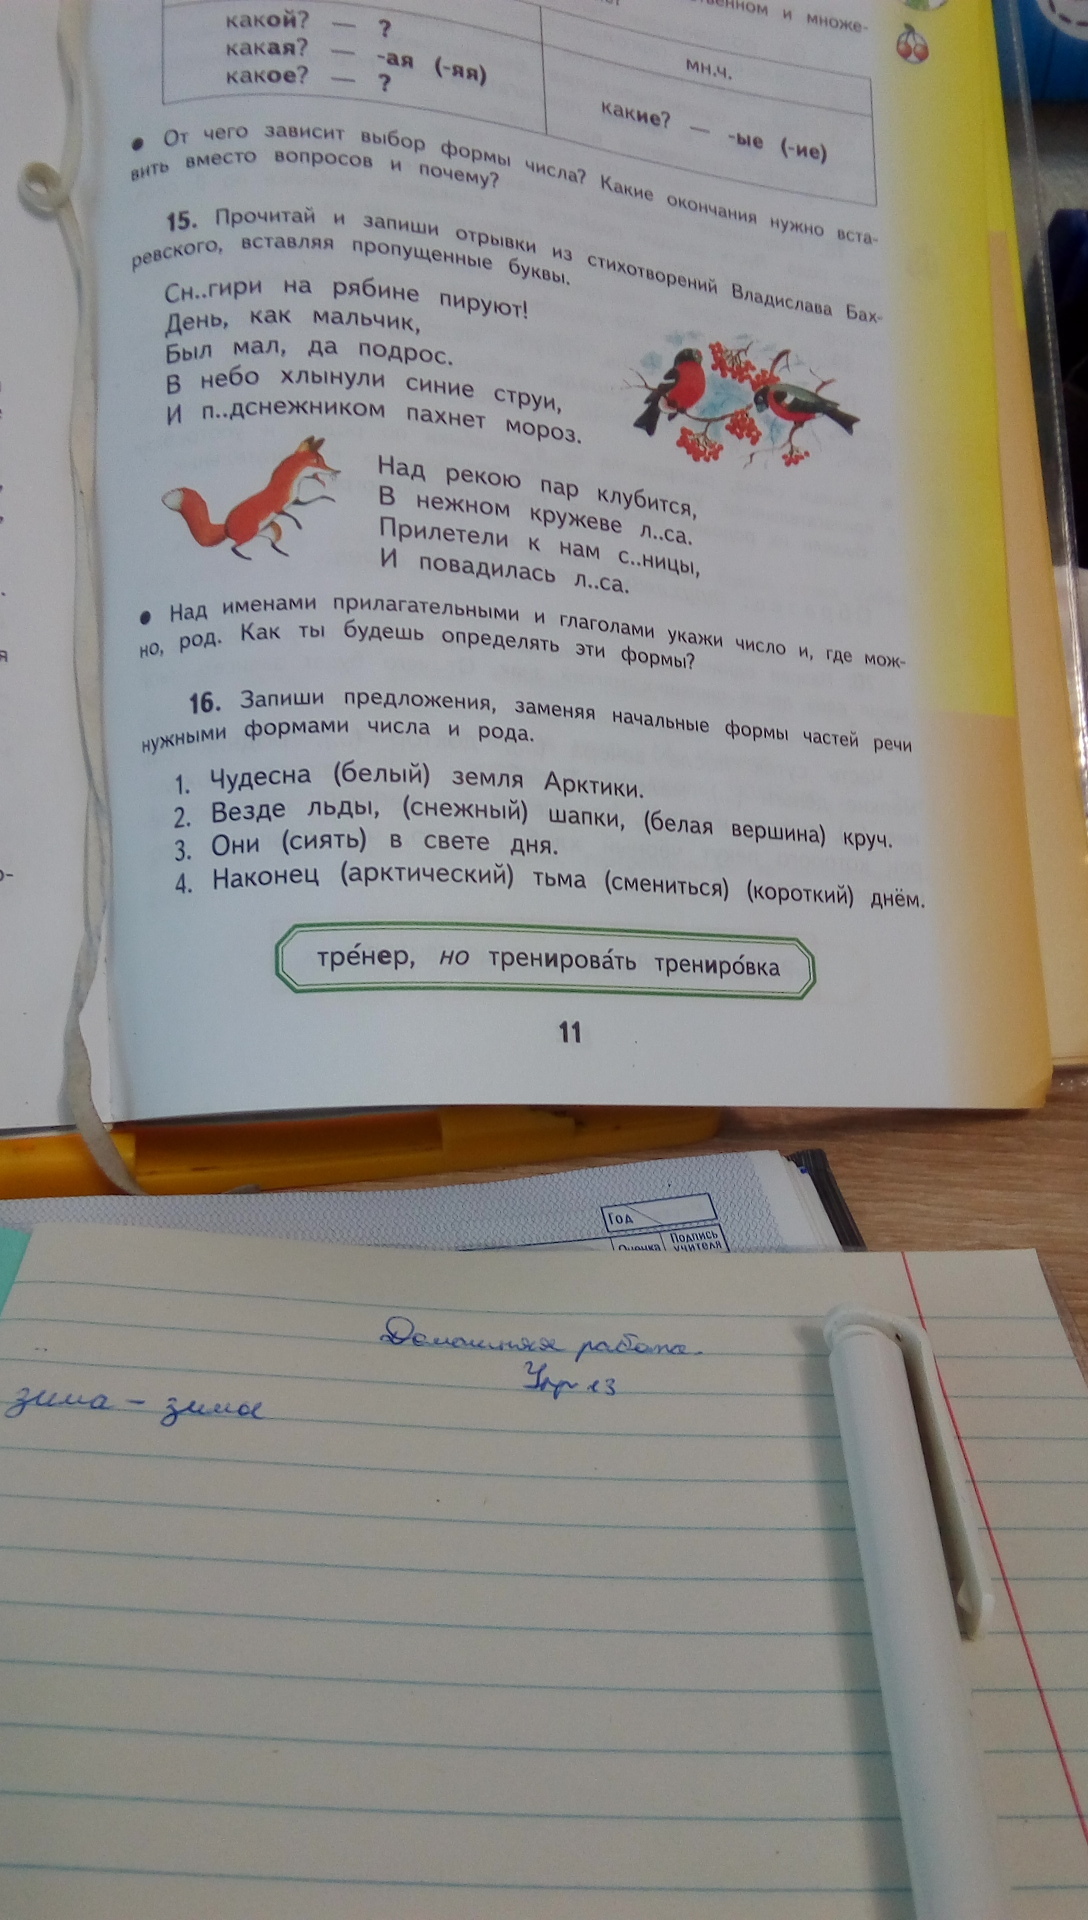 венном и множе-
какой? — ?
какая? — -ая (-яя)
какое? — ?
мн.ч.
какие? — -ые (-ие)
• От чего зависит выбор формы числа? Какие окончания нужно вста-
вить вместо вопросов и почему?
15. Прочитай и запиши отрывки из стихотворений Владислава Бах-
ревского, вставляя пропущенные буквы.
Сн..гири на рябине пируют!
День, как мальчик,
Был мал, да подрос.
В небо хлынули синие струи,
И п..дснежником пахнет мороз.
Над рекою пар клубится,
В нежном кружеве л..са.
Прилетели к нам с..ницы,
И повадилась л..са.
• Над именами прилагательными и глаголами укажи число и, где мож-
но, род. Как ты будешь определять эти формы?
16. Запиши предложения, заменяя начальные формы частей речи
нужными формами числа и рода.
1. Чудесна (белый) земля Арктики.
2. Везде льды, (снежный) шапки, (белая вершина) круч.
3. Они (сиять) в свете дня.
4. Наконец (арктический) тьма (смениться) (короткий) днём.
тре́нер, но тренирова́ть трениро́вка
11
Год
Оценка
Подпись
учителя
Домашняя работа.
Упр 13
зима – зима